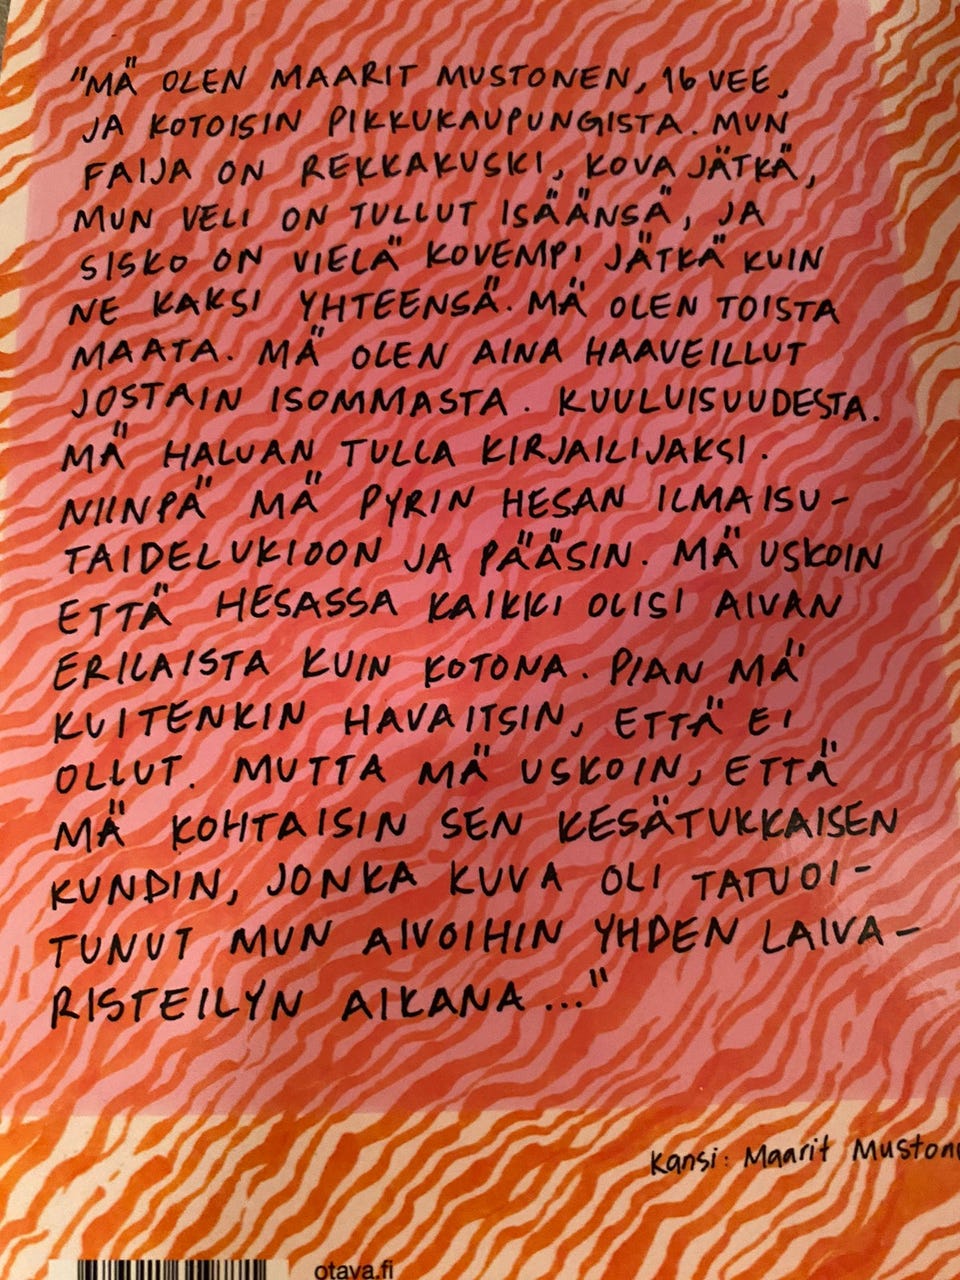 "MÄ OLEN MAARIT MUSTONEN, 16 VEE,
JA KOTOISIN PIKKUKAUPUNGISTA. MUN
FAIJA ON REKKAKUSKI, KOVA JÄTKÄ,
MUN VELI ON TULLUT ISÄÄNSÄ, JA
SISKO ON VIELÄ KOVEMPI JÄTKÄ KUIN
NE KAKSI YHTEENSÄ. MÄ OLEN TOISTA
MAATA. MÄ OLEN AINA HAAVEILLUT
JOSTAIN ISOMMASTA. KUULUISUUDESTA.
MÄ HALUAN TULLA KIRJAILIJAKSI.
NIINPÄ MÄ PYRIN HESAN ILMAISU-
TAIDELUKIOON JA PÄÄSIN. MÄ USKOIN
ETTÄ HESASSA KAIKKI OLISI AIVAN
ERILAISTA KUIN KOTONA. PIAN MÄ
KUITENKIN HAVAITSIN, ETTÄ EI
OLLUT. MUTTA MÄ USKOIN, ETTÄ
MÄ KOHTAISIN SEN KESÄTUKKAISEN
KUNDIN, JONKA KUVA OLI TATUOI-
TUNUT MUN AIVOIHIN YHDEN LAIVA-
RISTEILYN AIKANA..."
Kansi: Maarit Muston
otava.fi